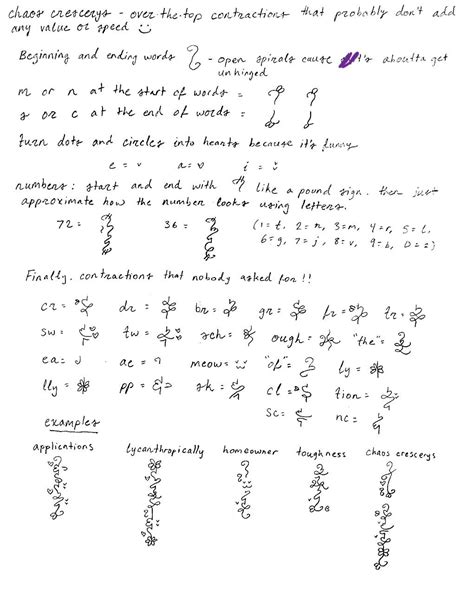 chaos crescerys - over-the-top contractions that probably don't add
any value or speed
Beginning and ending words - open spirals cause it's aboutta get
unhinged
m or n at the start of words =
s or c at the end of words =
turn dots and circles into hearts because it's funny
e = a = i =
numbers: start and end with like a pound sign. then just
approximate how the number looks using letters.
72 = 36 = (1=t, 2=n, 3=m, 4=r, 5=l,
6=g, 7=j, 8=v, 9=b, 0=z)
Finally. contractions that nobody asked for!!
cr = dr = br = gr = fr = tr =
sw = tw = sch = ough = "the" =
ea = ae = meow = "of" = ly =
lly = pp = sk = cl = tion =
sc = nc =
examples
applications lycanthropically homeowner toughness chaos crescerys